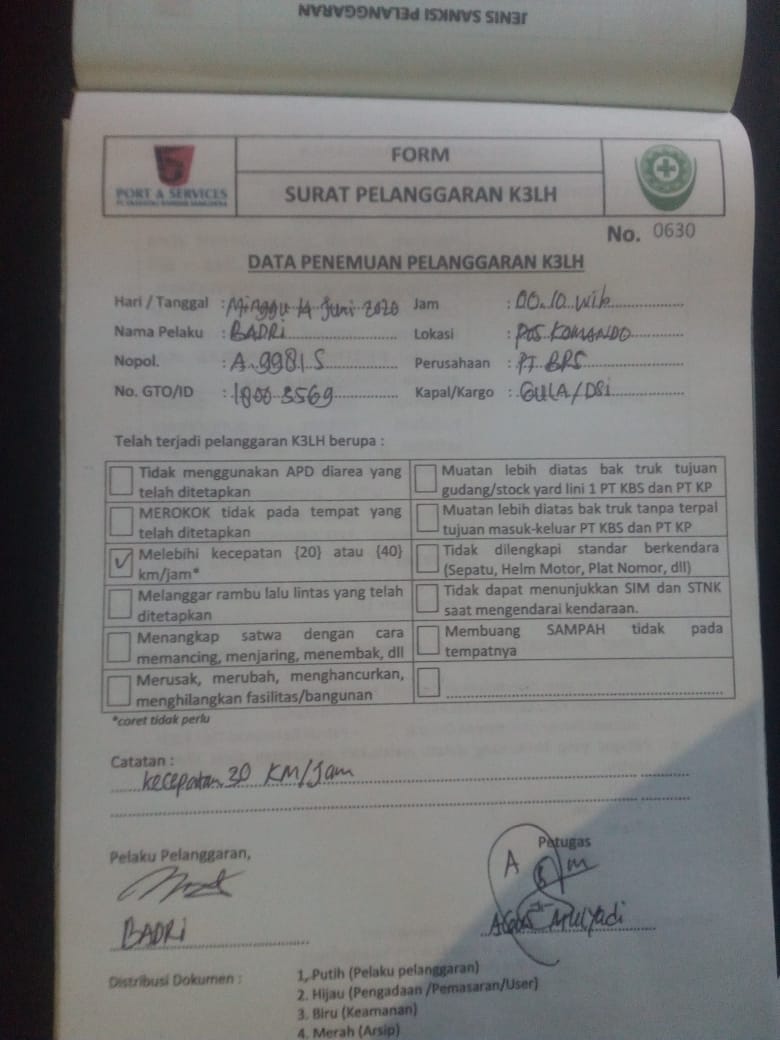 JENIS SANKSI PELANGGARAN
PORT & SERVICES
FORM
SURAT PELANGGARAN K3LH
No. 0630
DATA PENEMUAN PELANGGARAN K3LH
Hari / Tanggal : Minggu 14 Juni 2020
Jam : 00.10 wib
Nama Pelaku : BADRi
Lokasi : POS KOMANDO
Nopol. : A 9981 S
Perusahaan : PT BRS
No. GTO/ID : 1800 3569
Kapal/Kargo : GULA/DSi
Telah terjadi pelanggaran K3LH berupa :
Tidak menggunakan APD diarea yang
telah ditetapkan
Muatan lebih diatas bak truk tujuan
gudang/stock yard lini 1 PT KBS dan PT KP
MEROKOK tidak pada tempat yang
telah ditetapkan
Muatan lebih diatas bak truk tanpa terpal
tujuan masuk-keluar PT KBS dan PT KP
✓ Melebihi kecepatan {20} atau {40}
km/jam*
Tidak dilengkapi standar berkendara
(Sepatu, Helm Motor, Plat Nomor, dll)
Melanggar rambu lalu lintas yang telah
ditetapkan
Tidak dapat menunjukkan SIM dan STNK
saat mengendarai kendaraan.
Menangkap satwa dengan cara
memancing, menjaring, menembak, dll
Membuang SAMPAH tidak pada
tempatnya
Merusak, merubah, menghancurkan,
menghilangkan fasilitas/bangunan
*coret tidak perlu
Catatan :
kecepatan 30 KM/Jam
Pelaku Pelanggaran,
Petugas
BADRi
Agus Mulyadi
Distribusi Dokumen :
1. Putih (Pelaku pelanggaran)
2. Hijau (Pengadaan /Pemasaran/User)
3. Biru (Keamanan)
4. Merah (Arsip)